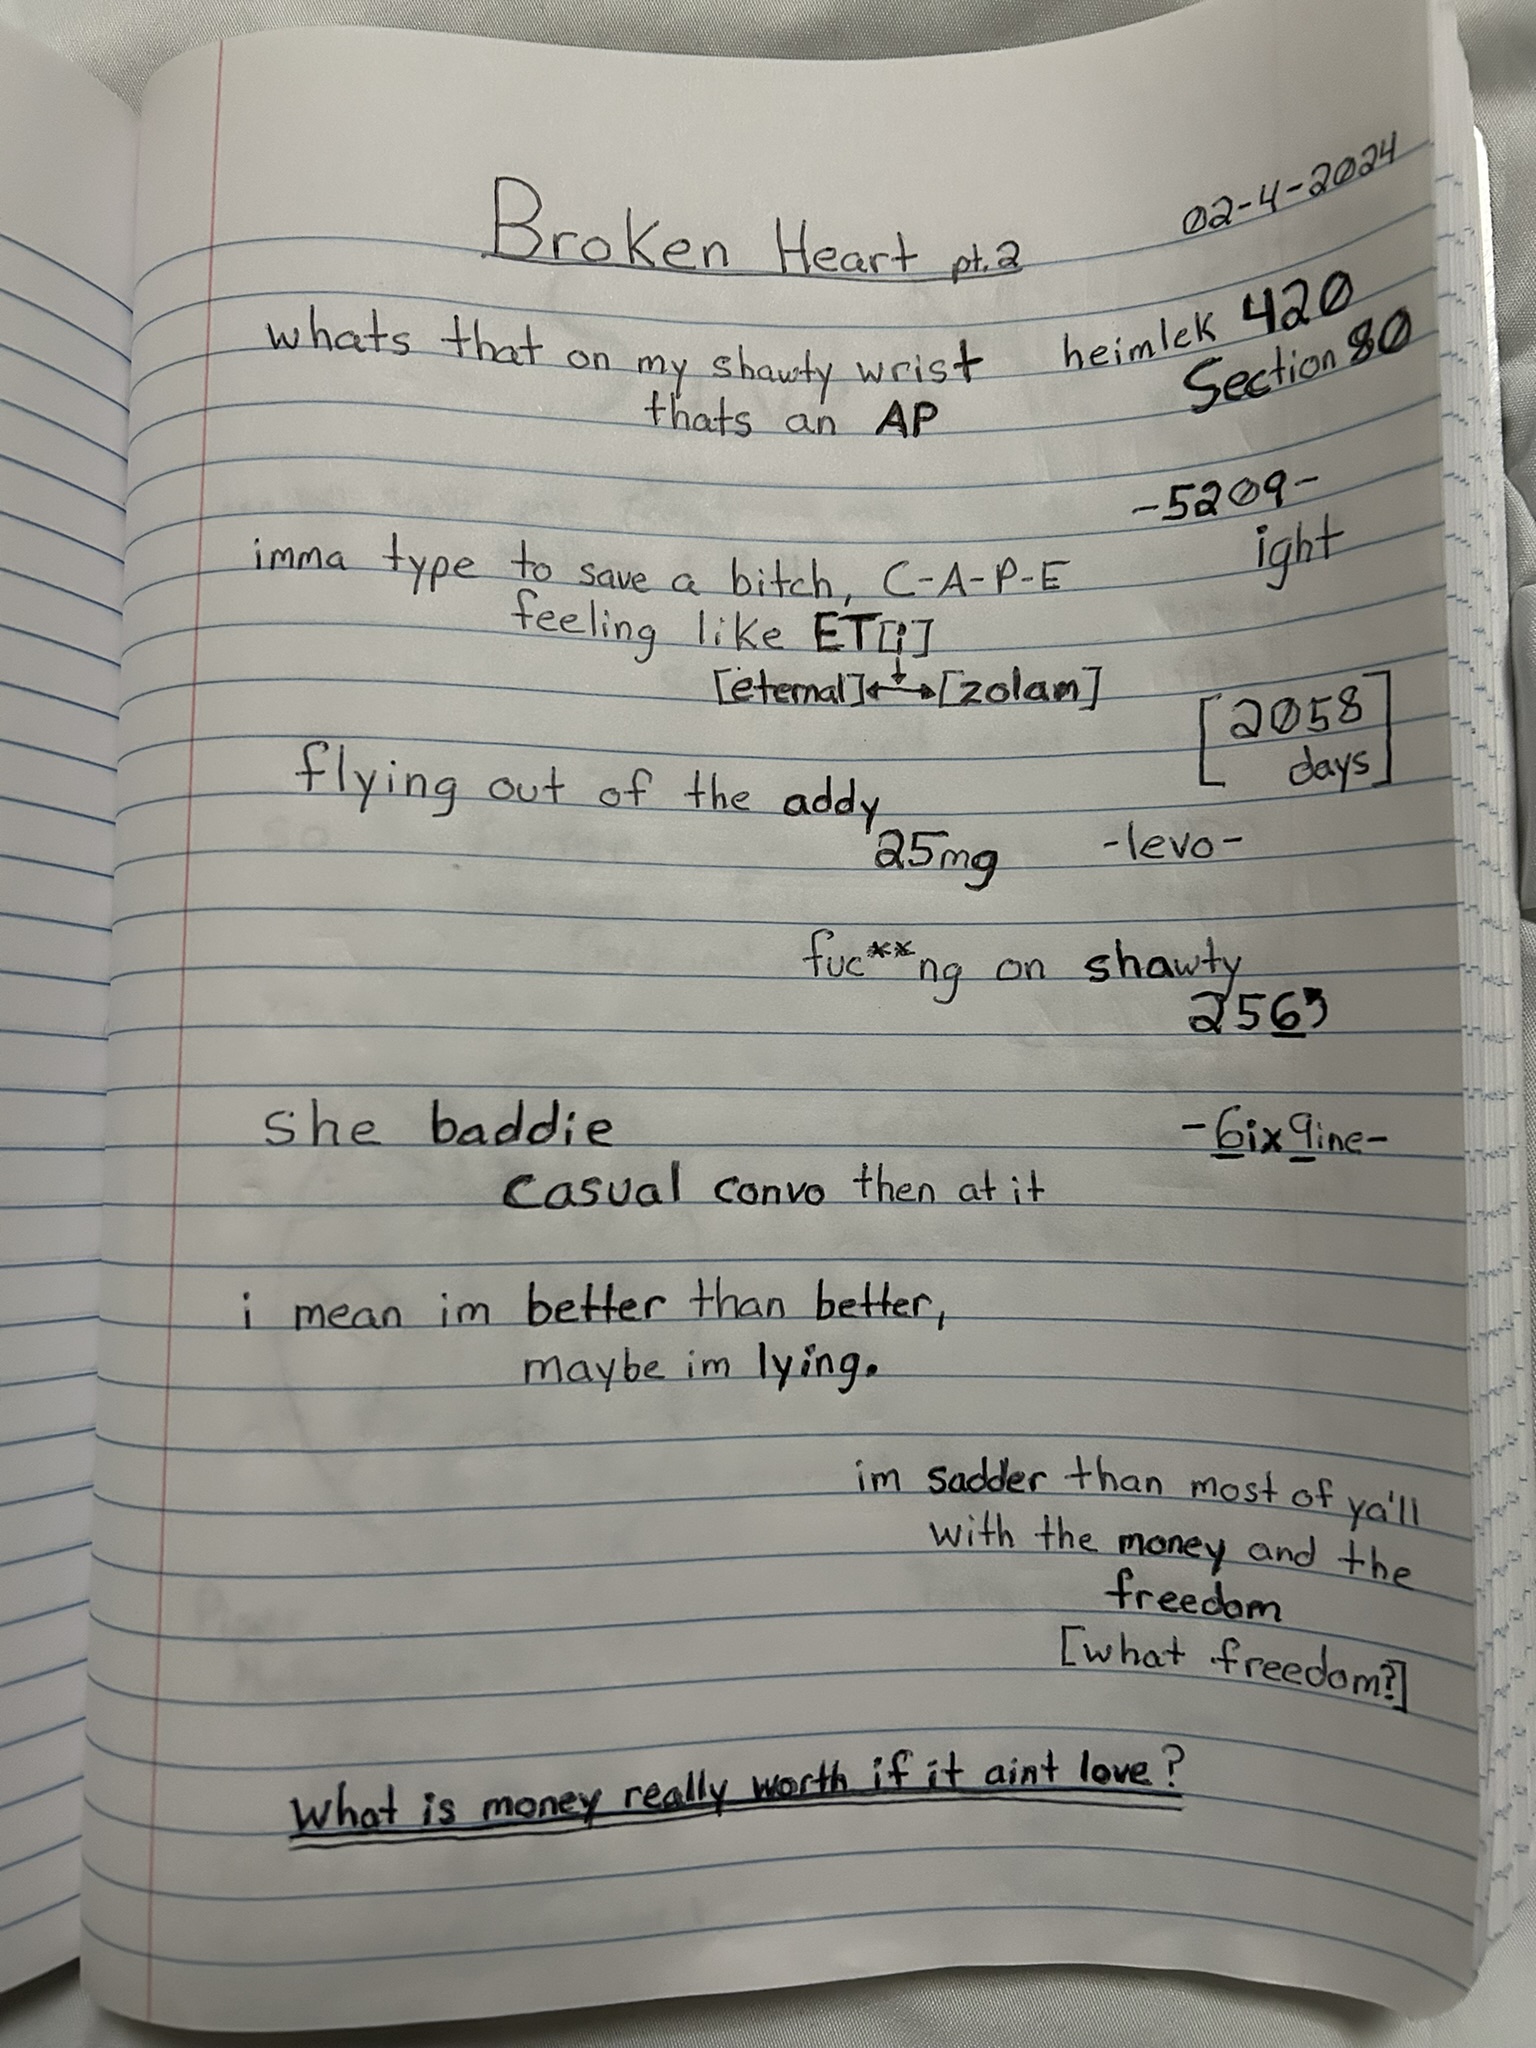 02-4-2024
Broken Heart pt.2
whats that on my shawty wrist heimlek 420
thats an AP Section 80
-5209-
imma type to save a bitch, C-A-P-E ight
feeling like ET[i]
[eternal]↔[zolam]
[2058
days]
flying out of the addy
25mg -levo-
fuc**ng on shawty
256
she baddie -6ix9ine-
casual convo then at it
i mean im better than better,
maybe im lying.
im sadder than most of ya'll
with the money and the
freedom
[what freedom?]
What is money really worth if it aint love?